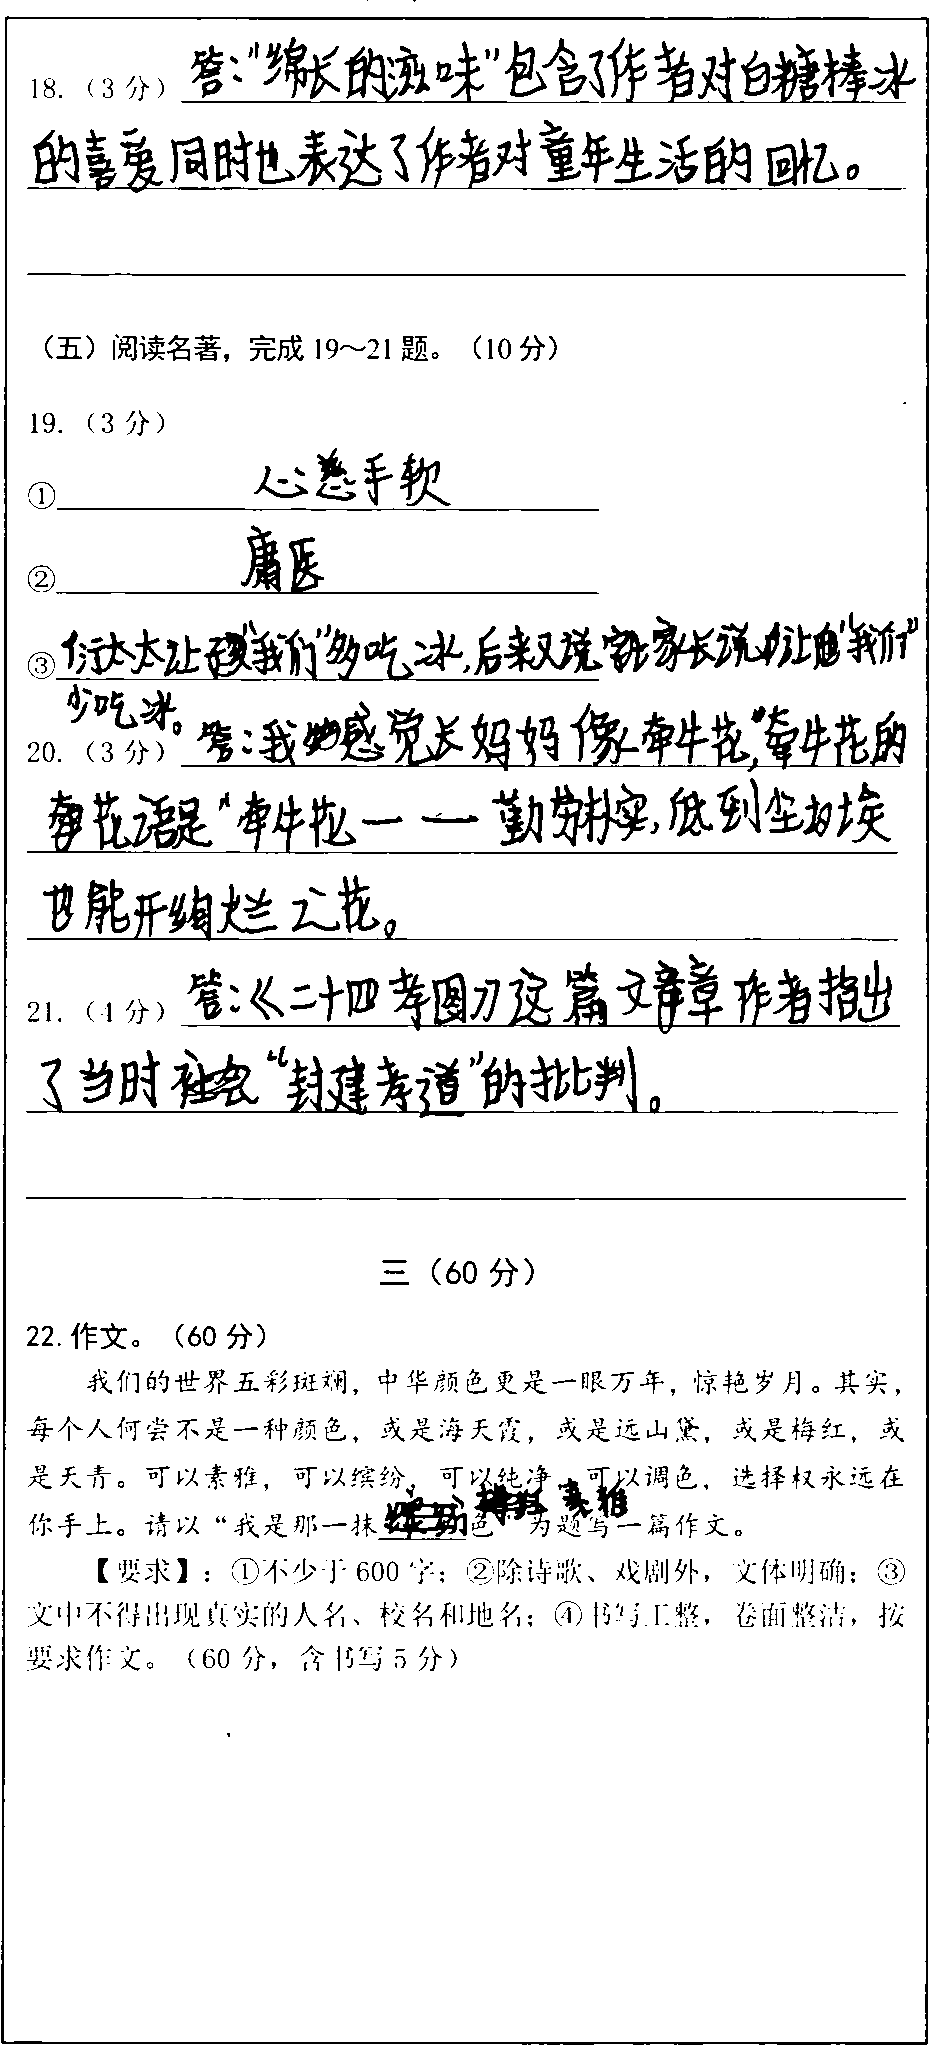 18.（3分）答："绵长的滋味"包含了作者对白糖棒冰
的喜爱同时也表达了作者对童年生活的回忆。
（五）阅读名著，完成19～21题。（10分）
19.（3分）
①心慈手软
②庸医
③衍太太让"我们"多吃冰，后来又说家长说让"我们"
少吃冰。
20.（3分）答：我感觉长妈妈像牵牛花，"牵牛花的
花语是"牵牛花——勤劳朴实，低到尘埃
也能开绚烂之花。
21.（4分）答：《二十四孝图》这篇文章作者指出
了当时社会"封建孝道"的批判。
三（60分）
22.作文。（60分）
我们的世界五彩斑斓，中华颜色更是一眼万年，惊艳岁月。其实，
每个人何尝不是一种颜色，或是海天霞，或是远山黛，或是梅红，或
是天青。可以素雅，可以缤纷，可以纯净，可以调色，选择权永远在
你手上。请以"我是那一抹色"为题写一篇作文。
【要求】：①不少于600字；②除诗歌、戏剧外，文体明确；③
文中不得出现真实的人名、校名和地名；④书写工整，卷面整洁，按
要求作文。（60分，含书写5分）